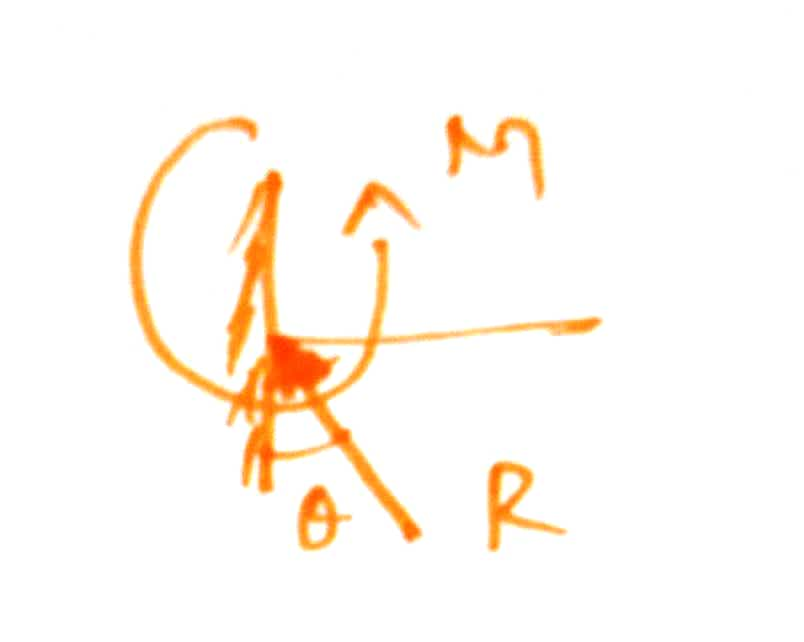 M
θ R